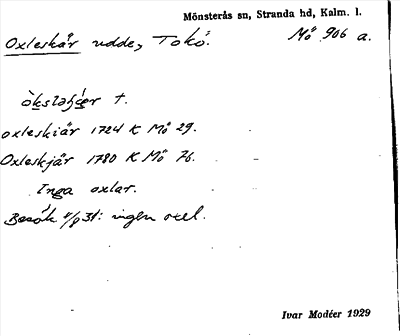 Mönsterås sn, Stranda hd, Kalm. l.
Oxleskär udde, Tokö. Mö 906 a.
oxleskiär 1724 K Mö 29.
Oxleskjär 1780 K Mö 76.
Inga oxlar.
Besök 31: ingen oxel.
Ivar Modéer 1929